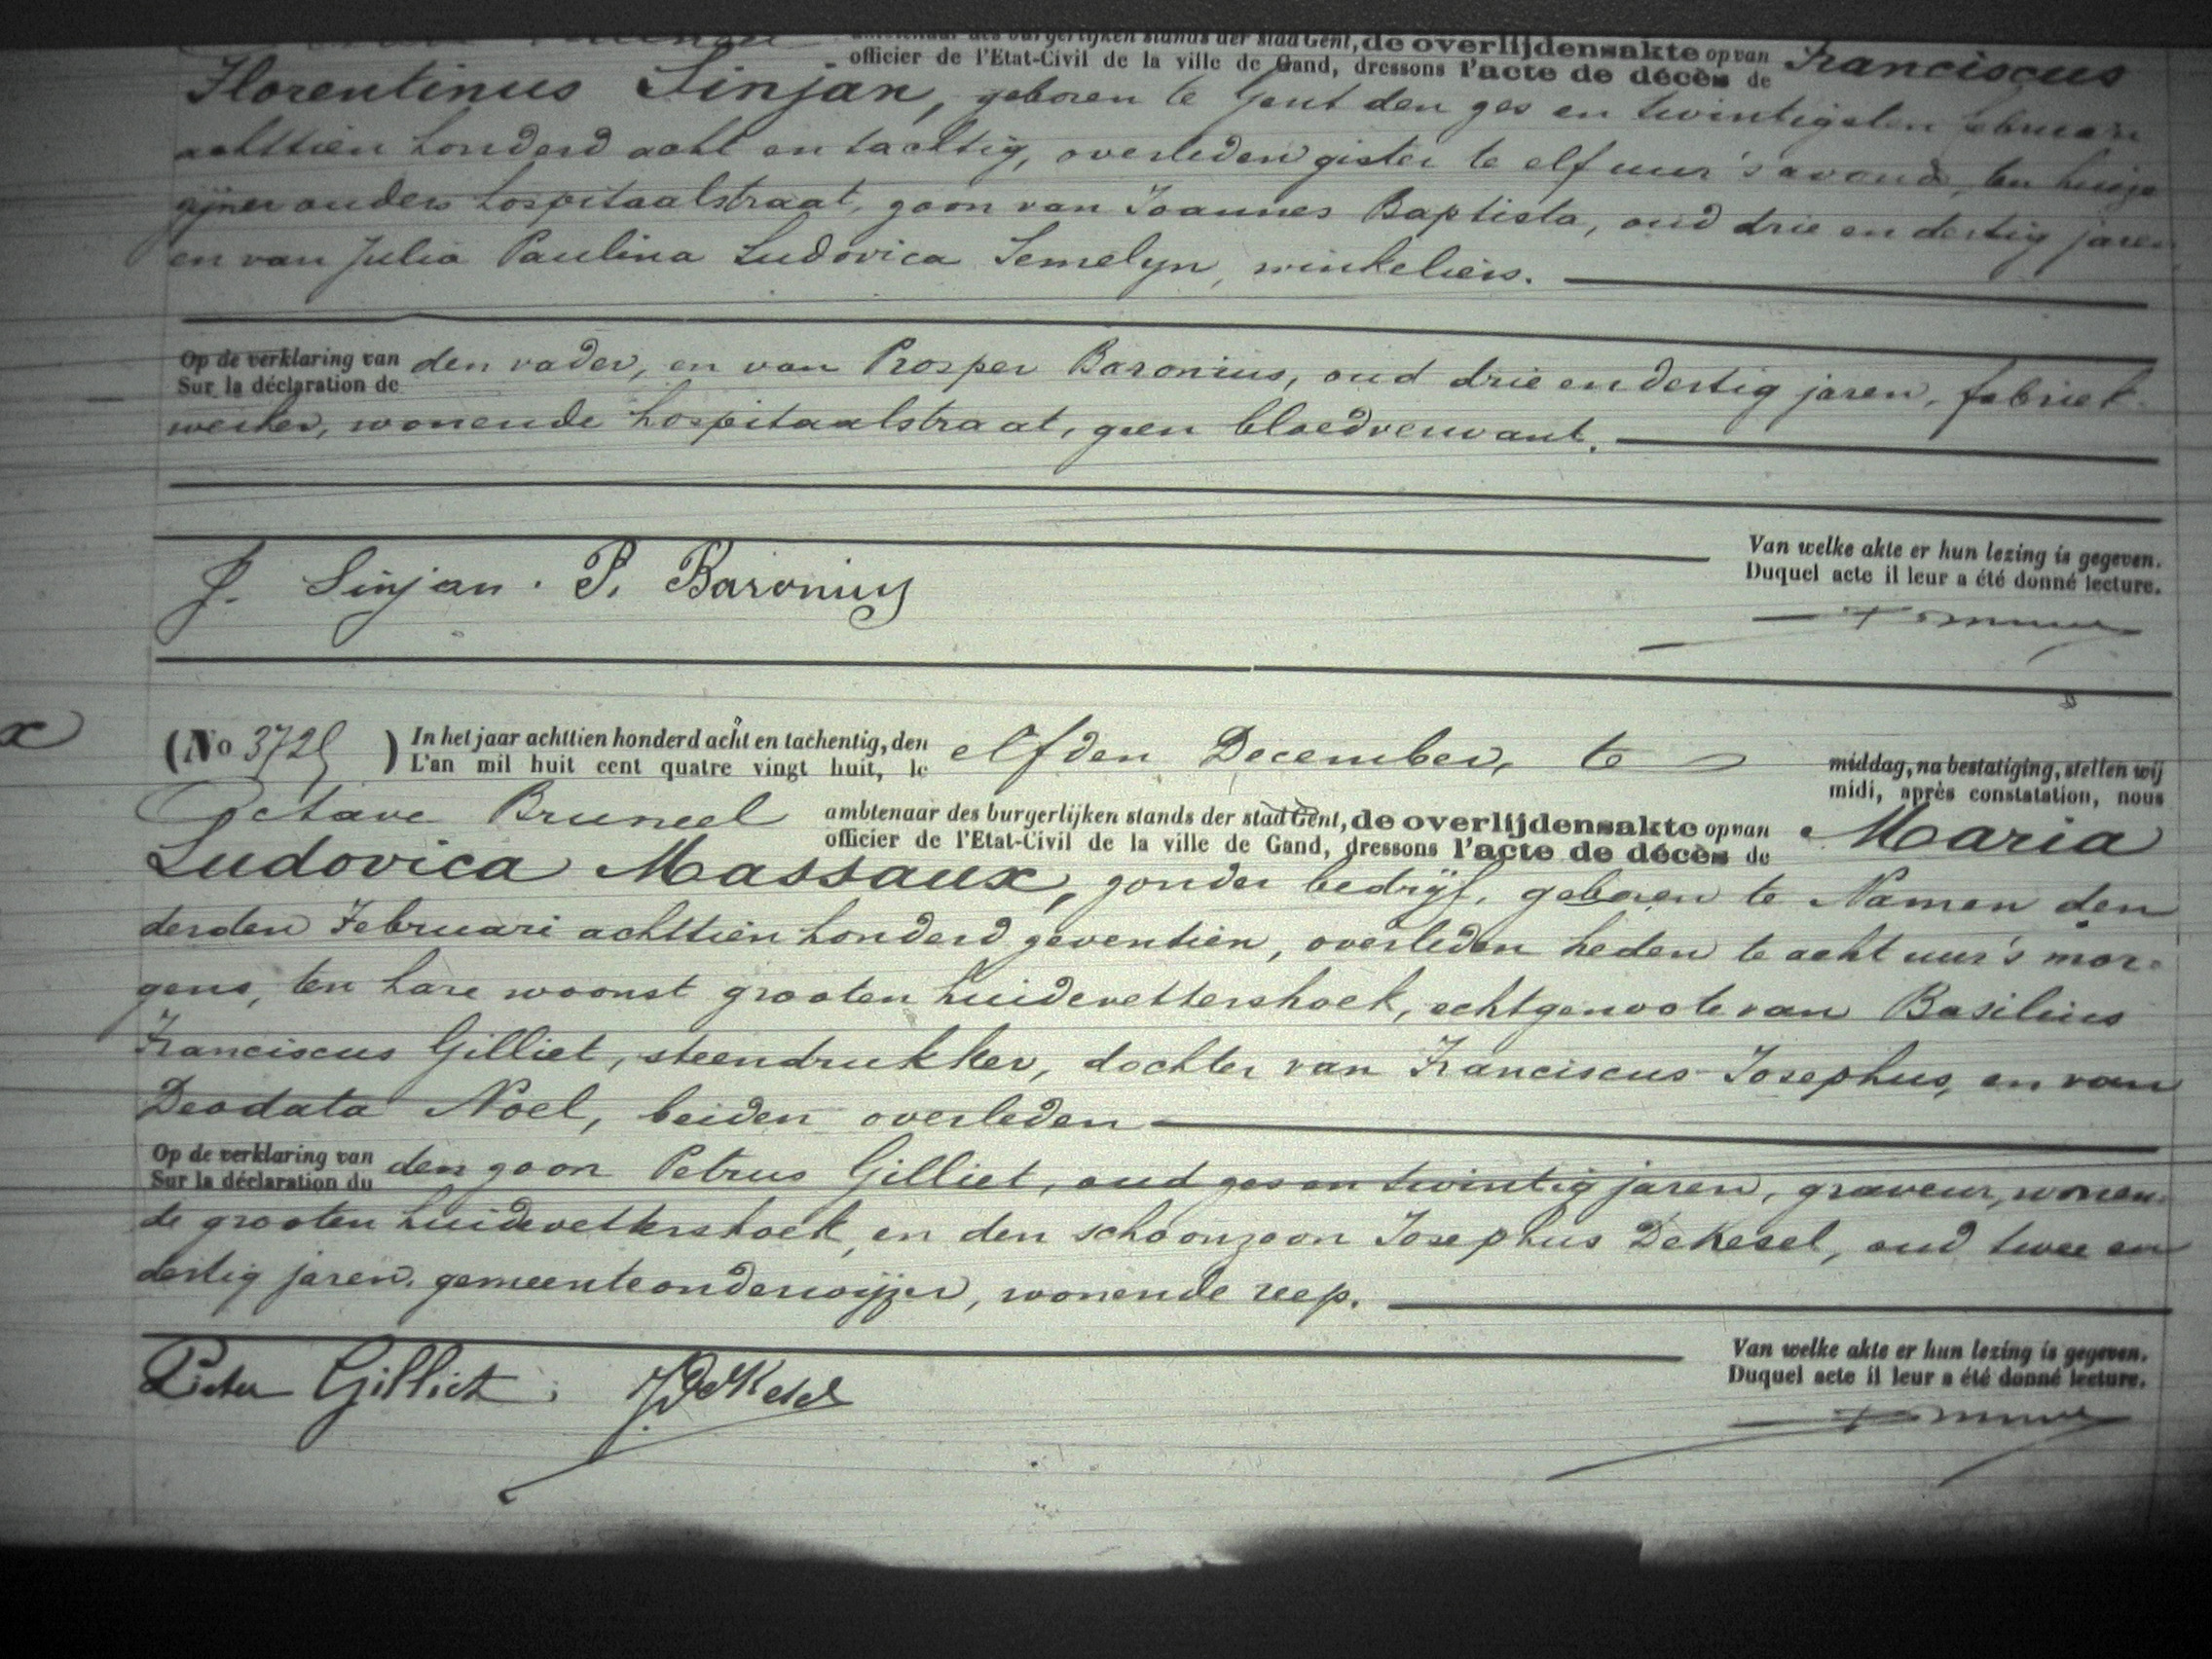 ambtenaar des burgerlijken stands der stad Gent, de overlijdensakte op van Franciscus
officier de l'Etat-Civil de la ville de Gand, dressons l'acte de décès de
Florentinus Sinjan, geboren te Gent den zes en twintigsten februari
achttien honderd acht en tachtig, overleden gister te elf uur 's avond, ten huize
zijner ouders hospitaalstraat, zoon van Joannes Baptista, oud drie en dertig jaren
en van Julia Paulina Ludovica Semelyn, winkeliers.
Op de verklaring van den vader, en van Prosper Baronius, oud drie en dertig jaren, fabriek-
Sur la déclaration de
werker, wonende hospitaalstraat, geen bloedverwant.
Van welke akte er hun lezing is gegeven.
Duquel acte il leur a été donné lecture.
J. Sinjan. P. Baronius
x
(No 3725) In het jaar achttien honderd acht en tachentig, den elfden December, te middag, na bestatiging, stellen wij
L'an mil huit cent quatre vingt huit, le midi, après constatation, nous
Octave Bruneel ambtenaar des burgerlijken stands der stad Gent, de overlijdensakte op van Maria
officier de l'Etat-Civil de la ville de Gand, dressons l'acte de décès de
Ludovica Massaux, zonder bedrijf, geboren te Namen den
derden Februari achttien honderd zeventien, overleden heden te acht uur 's mor-
gens, ten hare woonst grooten huidevettershoek, echtgenoote van Basilius
Franciscus Gilliet, steendrukker, dochter van Franciscus Josephus, en van
Deodata Noel, beiden overleden
Op de verklaring van den zoon Petrus Gilliet, oud zes en twintig jaren, graveur, wonen-
Sur la déclaration du
de grooten huidevettershoek, en den schoonzoon Josephus DeKesel, oud twee en
dertig jaren, gemeenteonderwijzer, wonende reep.
Van welke akte er hun lezing is gegeven.
Duquel acte il leur a été donné lecture.
Pieter Gilliet. J. DeKesel